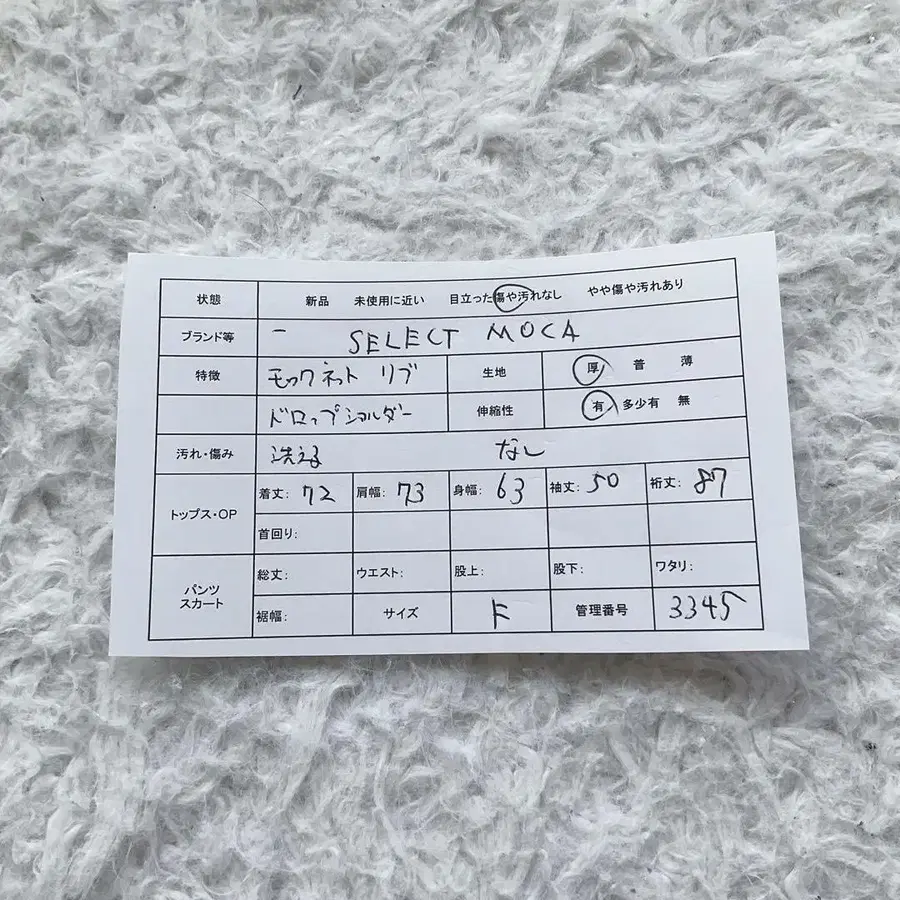 状態 新品 未使用に近い 目立った傷や汚れなし やや傷や汚れあり
ブランド等 ー SELECT MOCA
特徴 モックネット リブ 生地 厚 普 薄
ドロップショルダー 伸縮性 有 多少有 無
汚れ・傷み 洗える なし
トップス・OP 着丈: 72 肩幅: 73 身幅: 63 袖丈: 50 裄丈: 87
首回り:
パンツ スカート 総丈: ウエスト: 股上: 股下: ワタリ:
裾幅: サイズ F 管理番号 3345